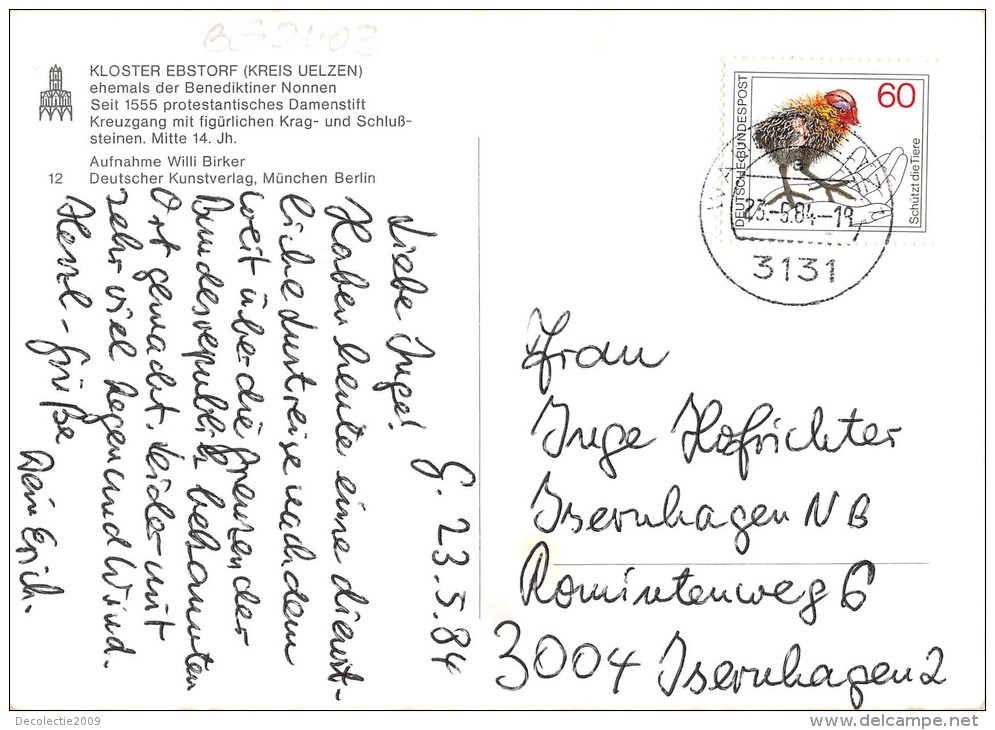 KLOSTER EBSTORF (KREIS UELZEN)
ehemals der Benediktiner Nonnen
Seit 1555 protestantisches Damenstift
Kreuzgang mit figürlichen Krag- und Schluß-
steinen. Mitte 14. Jh.
Aufnahme Willi Birker
12 Deutscher Kunstverlag, München Berlin
60
DEUTSCHE BUNDESPOST
Schützt die Tiere
23.-5.84-19
3131
G. 23.5.84
Liebe Inge!
Haben heute eine dienst-
liche Lustreise nach dem
weit über die Grenzen der
Bundesrepublik bekannten
Ort gemacht. Leider mit
sehr viel Regen und Wind.
Herzl-Grüße
Dein Erich.
Frau
Inge Hofrichter
Isernhagen NB
Romintenweg 6
3004 Isernhagen 2
Decolectie2009
www.delcampe.net